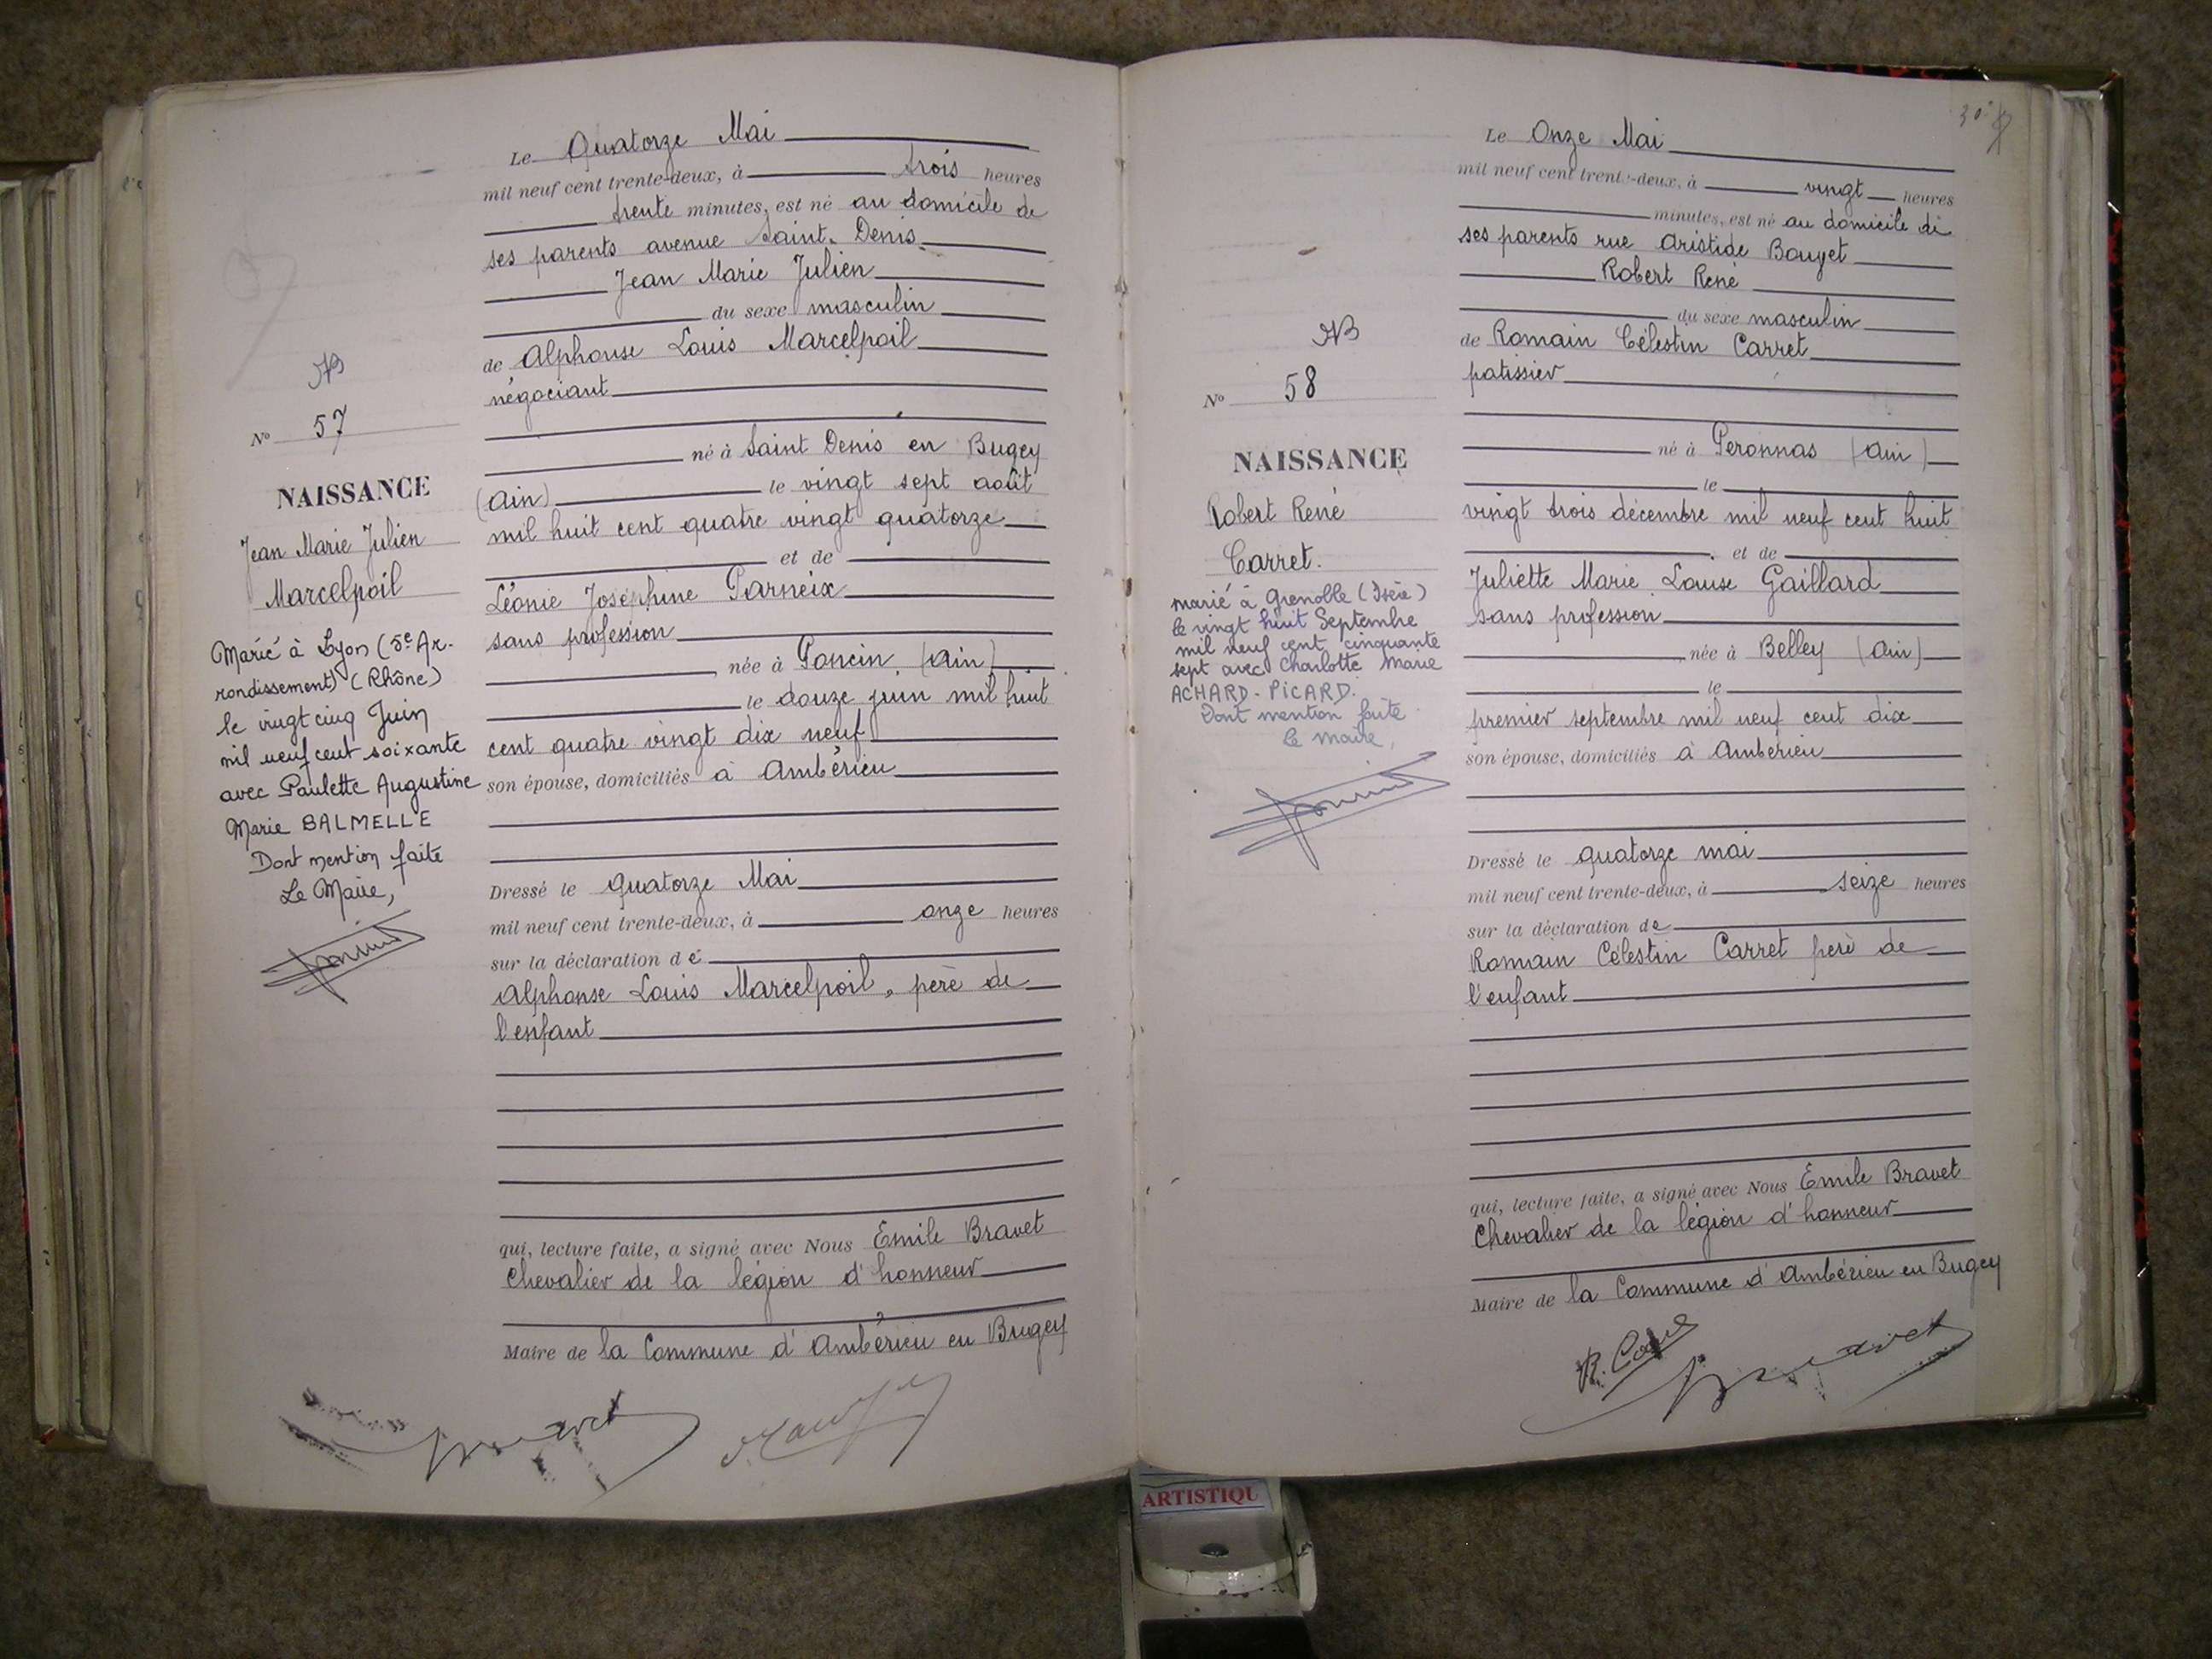 Le Quatorze Mai
mil neuf cent trente-deux, à trois heures
trente minutes, est né au domicile de
ses parents avenue Saint. Denis
Jean Marie Julien
du sexe masculin
de Alphonse Louis Marcelpoil
négociant
né à Saint Denis en Bugey
(Ain) le vingt sept août
mil huit cent quatre vingt quatorze
et de
Léonie Joséphine Parneix
sans profession
née à Poncin (Ain)
le douze juin mil huit
cent quatre vingt dix neuf
son épouse, domiciliés à Ambérieu
Dressé le quatorze Mai
mil neuf cent trente-deux, à onze heures
sur la déclaration de
Alphonse Louis Marcelpoil, père de
l'enfant
qui, lecture faite, a signé avec Nous Emile Bravet
Chevalier de la légion d'honneur
Maire de la Commune d'Ambérieu en Bugey
Nº 57
NAISSANCE
Jean Marie Julien
Marcelpoil
Marié à Lyon (5e Ar-
rondissement) (Rhône)
le vingt cinq Juin
mil neuf cent soixante
avec Paulette Augustine
Marie BALMELLE
Dont mention faite
Le Maire,
Bravet
30
Le Onze Mai
mil neuf cent trente-deux, à vingt heures
minutes, est né au domicile de
ses parents rue Aristide Bouyet
Robert René
du sexe masculin
de Romain Célestin Carret
patissier
né à Peronnas (Ain)
le
vingt trois décembre mil neuf cent huit
et de
Juliette Marie Louise Gaillard
sans profession
née à Belley (Ain)
le
premier septembre mil neuf cent dix
son épouse, domiciliés à Ambérieu
Dressé le quatorze mai
mil neuf cent trente-deux, à seize heures
sur la déclaration de
Romain Célestin Carret père de
l'enfant
qui, lecture faite, a signé avec Nous Emile Bravet
Chevalier de la légion d'honneur
Maire de la Commune d'Ambérieu en Bugey
Nº 58
NAISSANCE
Robert René
Carret.
marié à Grenoble (Isère)
le vingt huit Septembre
mil neuf cent cinquante
sept avec Charlotte Marie
ACHARD-PICARD.
Dont mention faite
le maire,
Bravet
ARTISTIQU